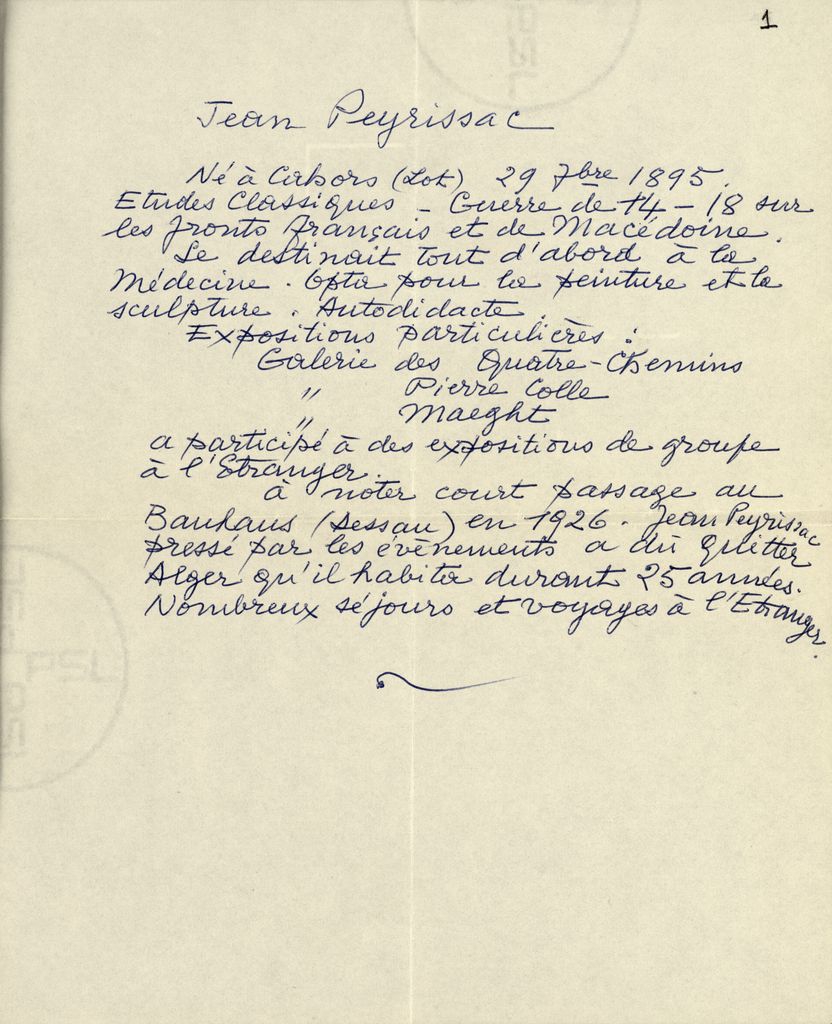 1
Jean Peyrissac
Né à Cahors (Lot) 29 7bre 1895.
Etudes Classiques - Guerre de 14-18 sur
les fronts français et de Macédoine.
Se destinait tout d'abord à la
Médecine. Opta pour la peinture et la
sculpture. Autodidacte.
Expositions particulières :
Galerie des Quatre-Chemins
" Pierre Colle
" Maeght
a participé à des expositions de groupe
à l'Etranger.
à noter court passage au
Bauhaus (Dessau) en 1926. Jean Peyrissac
pressé par les évènements a dû quitter
Alger qu'il habita durant 25 années.
Nombreux séjours et voyages à l'Etranger.
PSL